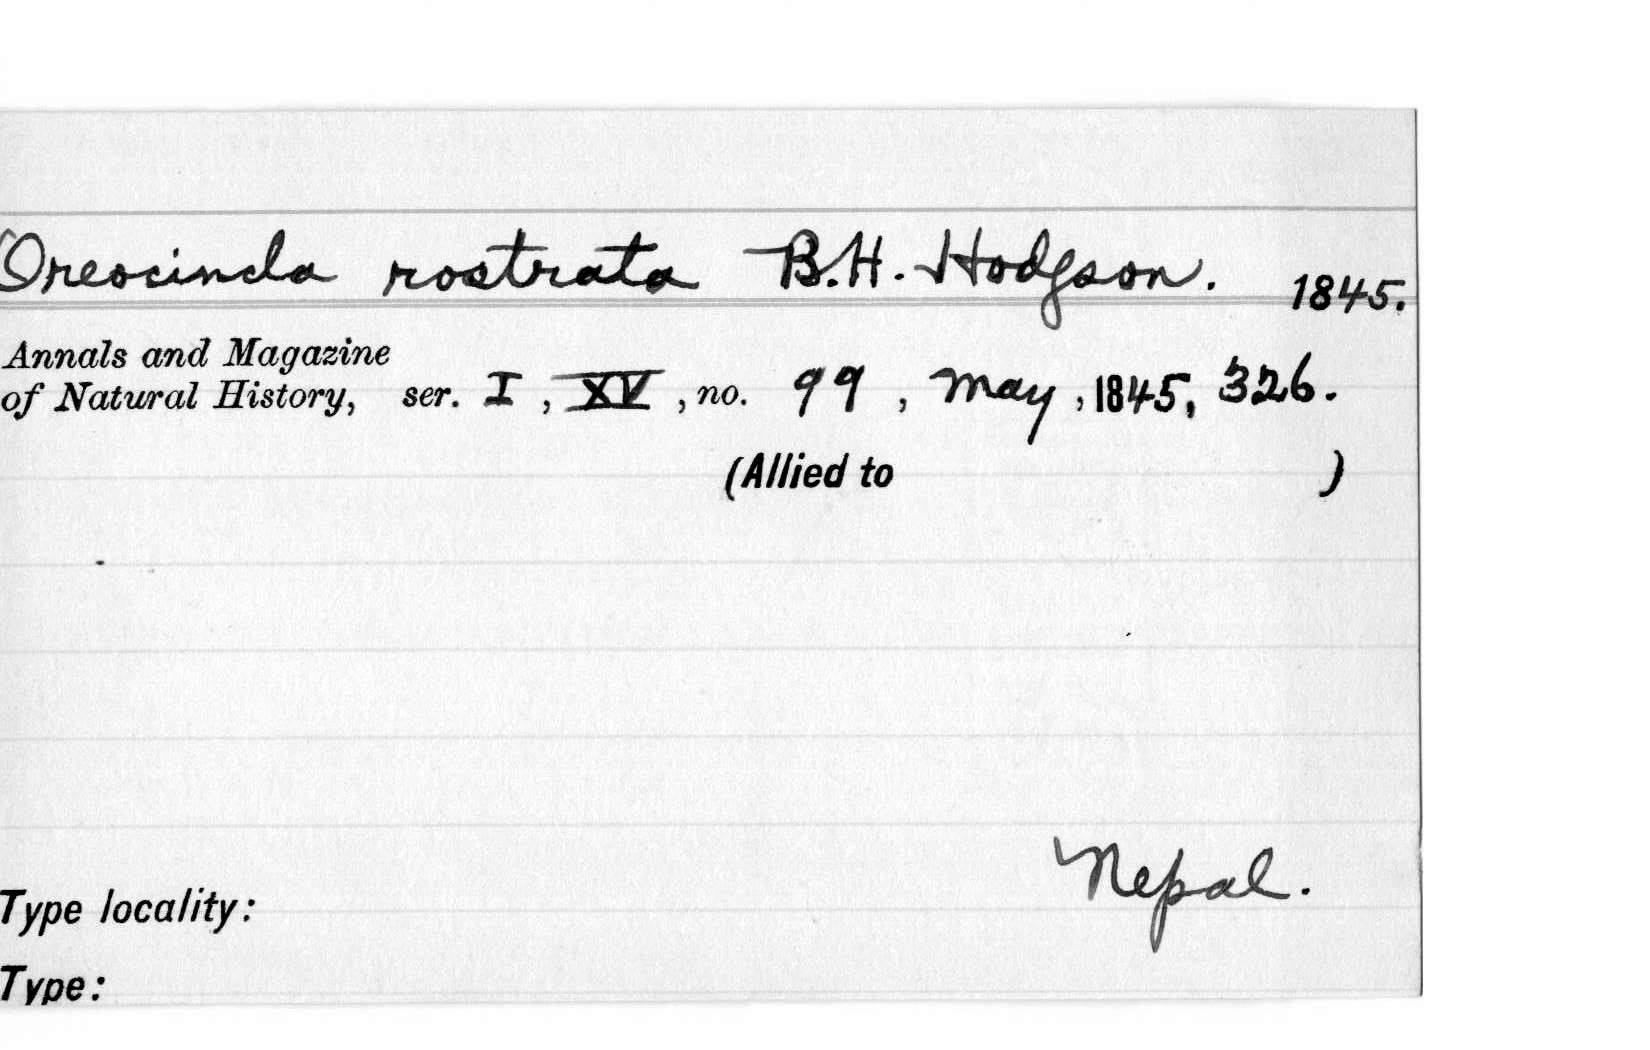 Oreocincla rostrata B.H. Hodgson. 1845.
Annals and Magazine
of Natural History, ser. I, XV, no. 99, May, 1845, 326.
(Allied to )
Nepal.
Type locality:
Type: